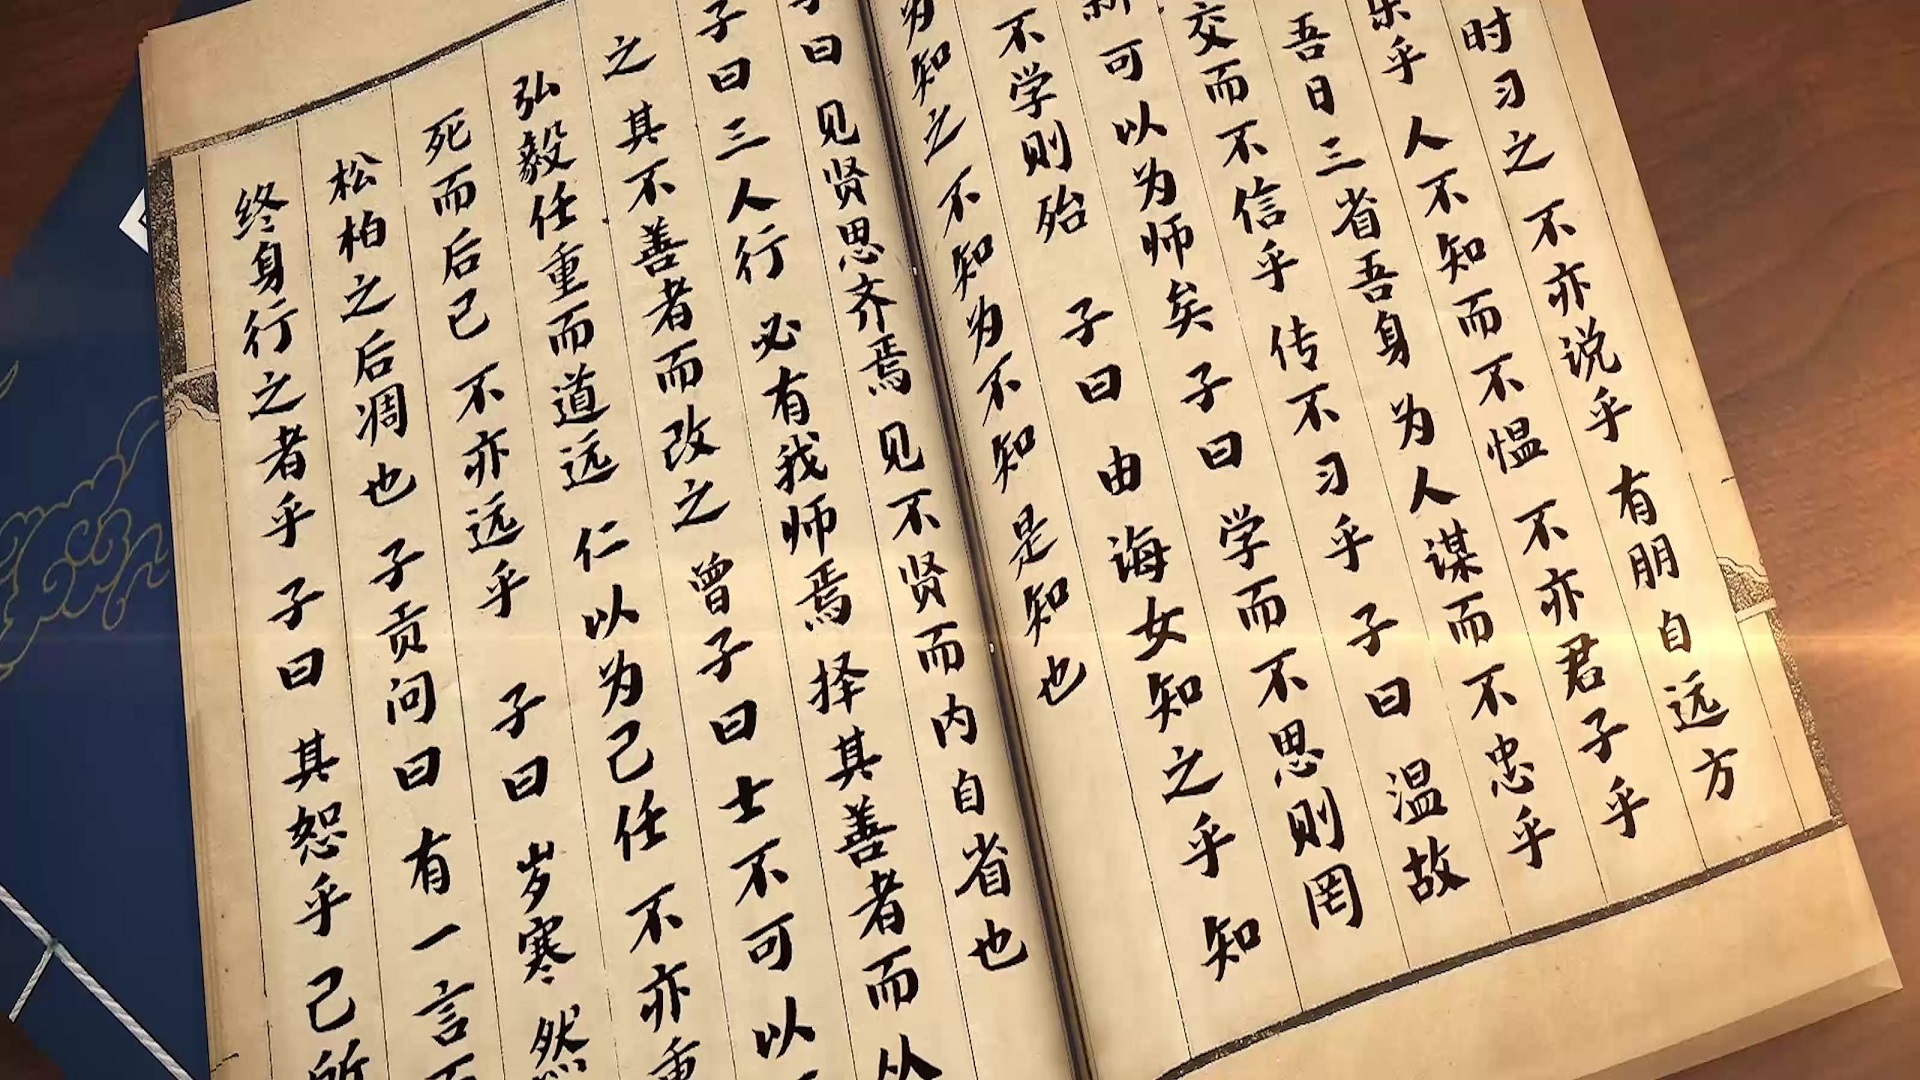 时习之 不亦说乎 有朋自远方
乐乎 人不知而不愠 不亦君子乎
吾日三省吾身 为人谋而不忠乎
交而不信乎 传不习乎 子曰 温故
新可以为师矣 子曰 学而不思则罔
不学则殆 子曰 由 诲女知之乎 知
为知之 不知为不知 是知也
子曰 见贤思齐焉 见不贤而内自省也
子曰 三人行 必有我师焉 择其善者而从
之 其不善者而改之 曾子曰 士不可以
弘毅任重而道远 仁以为己任 不亦重
死而后已 不亦远乎 子曰 岁寒 然
松柏之后凋也 子贡问曰 有一言而
终身行之者乎 子曰 其恕乎 己所